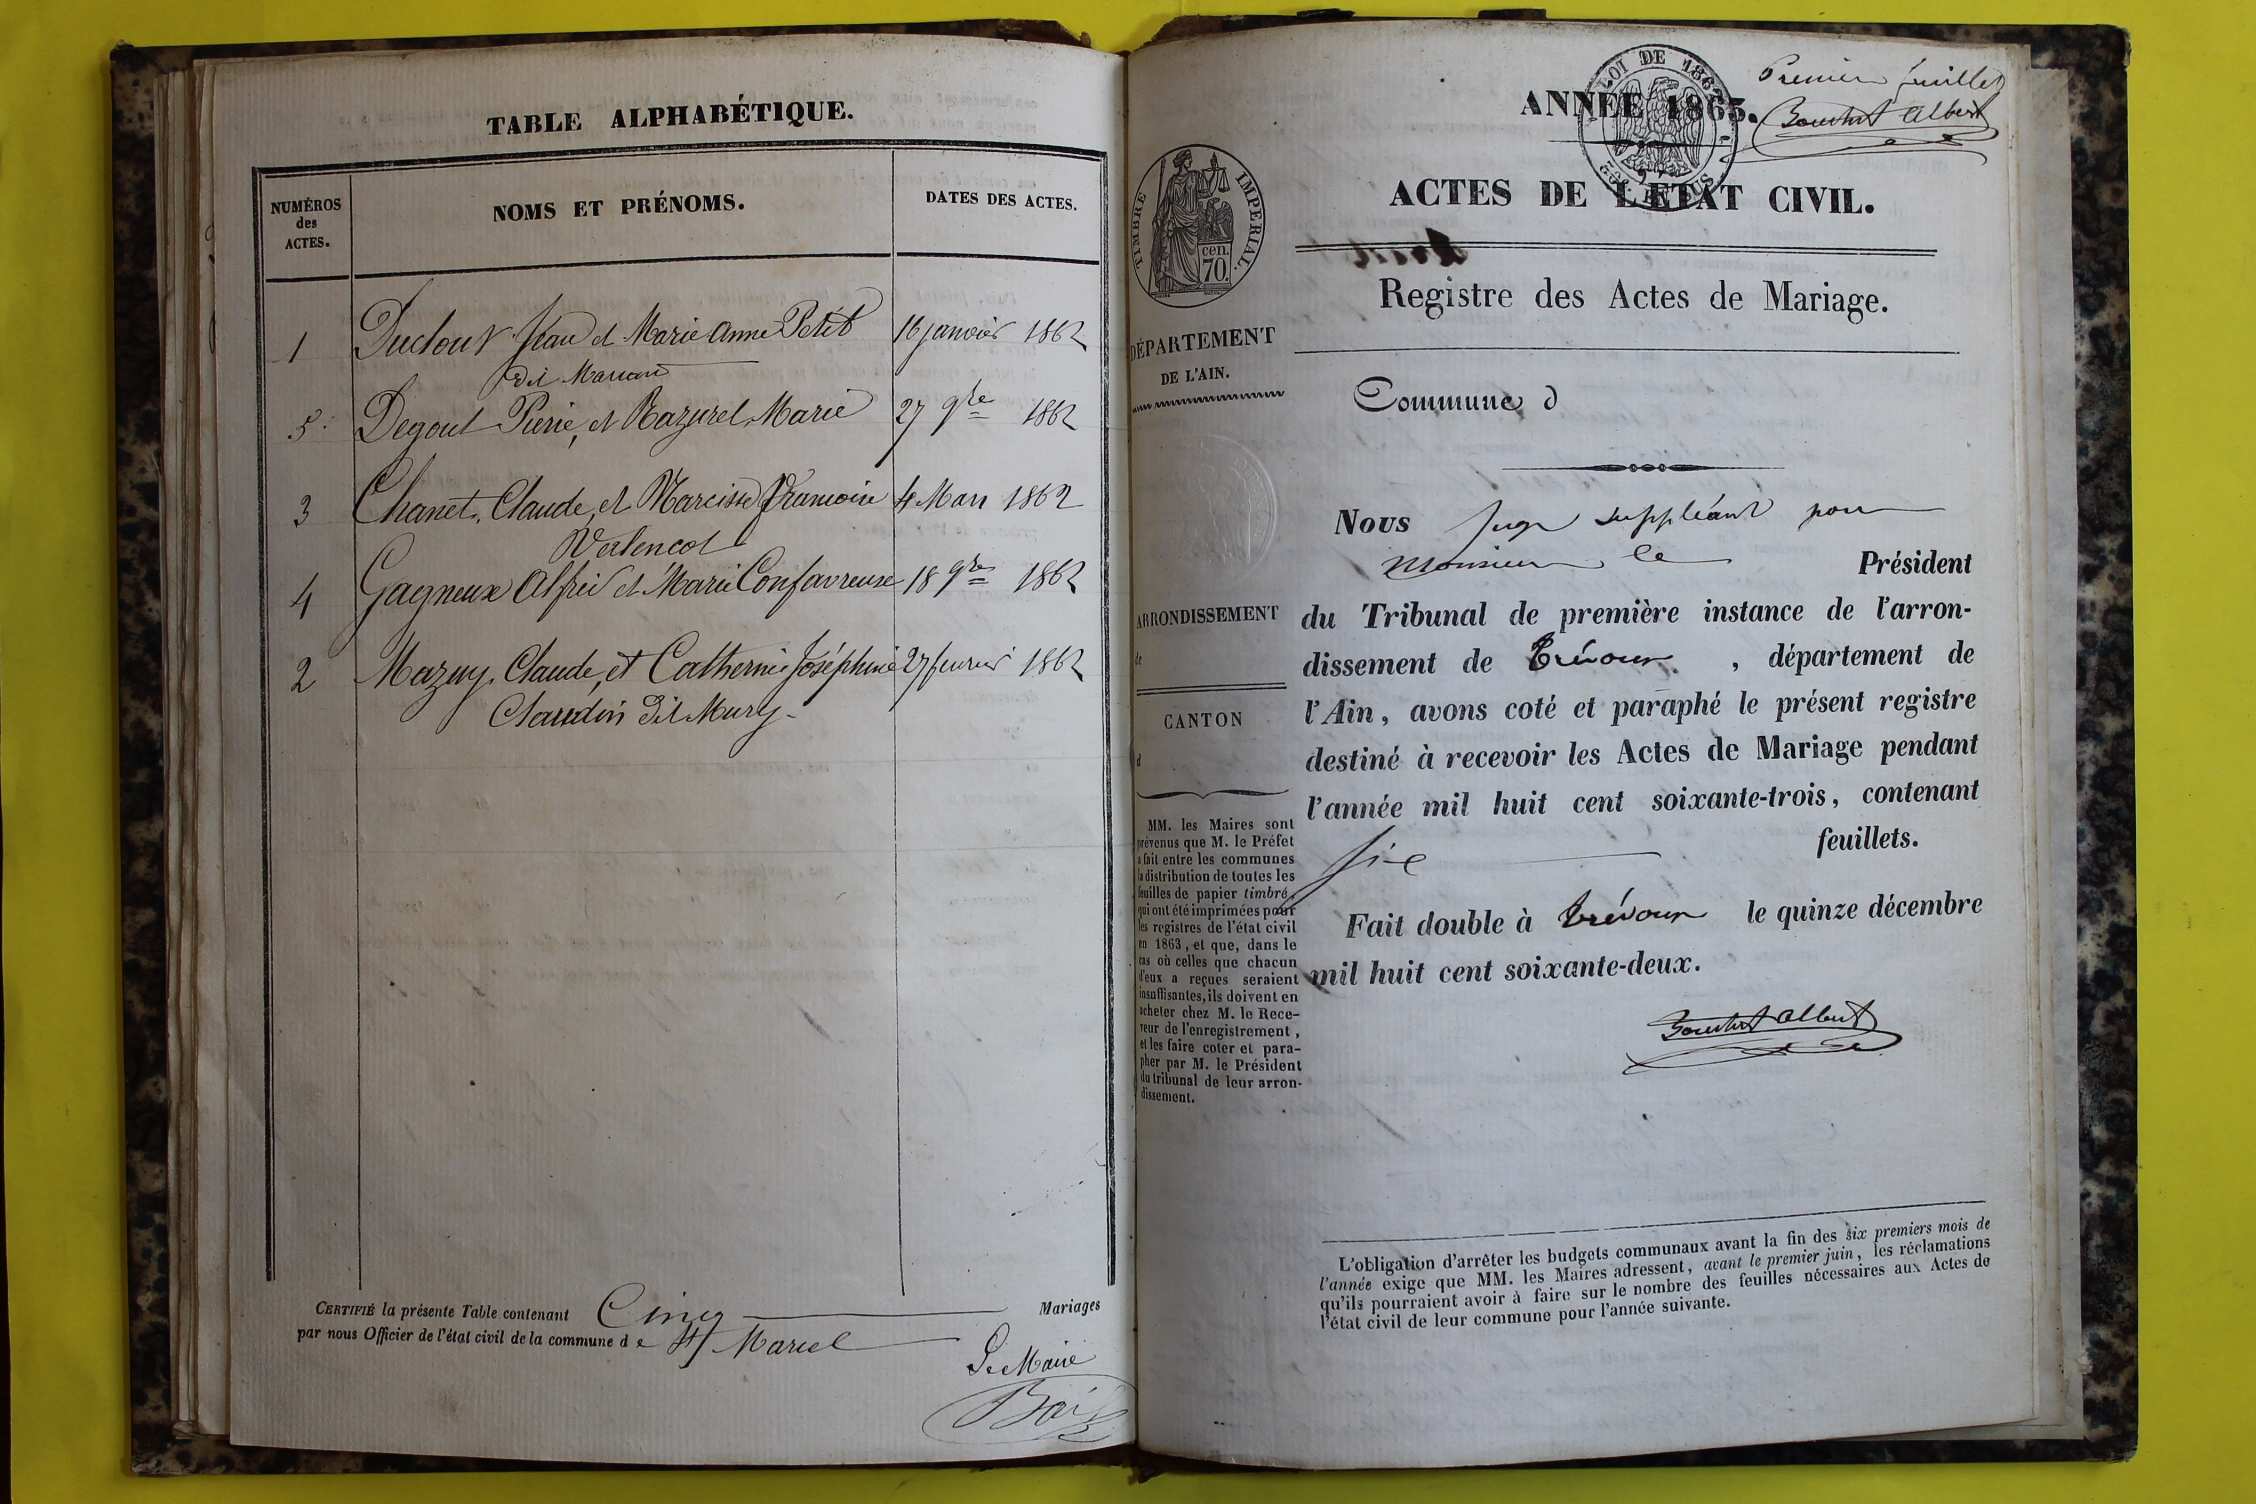 TABLE ALPHABÉTIQUE.
NUMÉROS des ACTES.
NOMS ET PRÉNOMS.
DATES DES ACTES.
1 Duclout Jean et Marie Anne Petit 16 janvier 1862
dit
5 Degout Pierre, et Razurel Marie 27 9bre 1862
3 Chanet, Claude, et Narcisse Francoise 4 Mars 1862
Verlencot
4 Gagneux Alfred et Marie Confavreuse 18 9bre 1862
2 Mazuy, Claude, et Catherine Joséphine 27 fevrier 1862
Claudin dit Mury
CERTIFIÉ la présente Table contenant Cinq Mariages
par nous Officier de l'état civil de la commune de St Marcel
Le Maire
LOI DE 1862
Premier feuillet
ANNÉE 1863.
Albert
ACTES DE L'ÉTAT CIVIL.
TIMBRE IMPERIAL.
70 cen.
Registre des Actes de Mariage.
DÉPARTEMENT
DE L'AIN.
Commune d
Nous Juge suppléant pour
Monsieur le Président
ARRONDISSEMENT
de
du Tribunal de première instance de l'arron-
dissement de Trévoux , département de
CANTON
d
l'Ain, avons coté et paraphé le présent registre
destiné à recevoir les Actes de Mariage pendant
l'année mil huit cent soixante-trois, contenant
six feuillets.
Fait double à Trévoux le quinze décembre
mil huit cent soixante-deux.
Albert
MM. les Maires sont
prévenus que M. le Préfet
a fait entre les communes
la distribution de toutes les
feuilles de papier timbré,
qui ont été imprimées pour
les registres de l'état civil
en 1863, et que, dans le
cas où celles que chacun
d'eux a reçues seraient
insuffisantes, ils doivent en
acheter chez M. le Rece-
veur de l'enregistrement,
et les faire coter et para-
pher par M. le Président
du tribunal de leur arron-
dissement.
L'obligation d'arrêter les budgets communaux avant la fin des six premiers mois de
l'année exige que MM. les Maires adressent, avant le premier juin, les réclamations
qu'ils pourraient avoir à faire sur le nombre des feuilles nécessaires aux Actes de
l'état civil de leur commune pour l'année suivante.